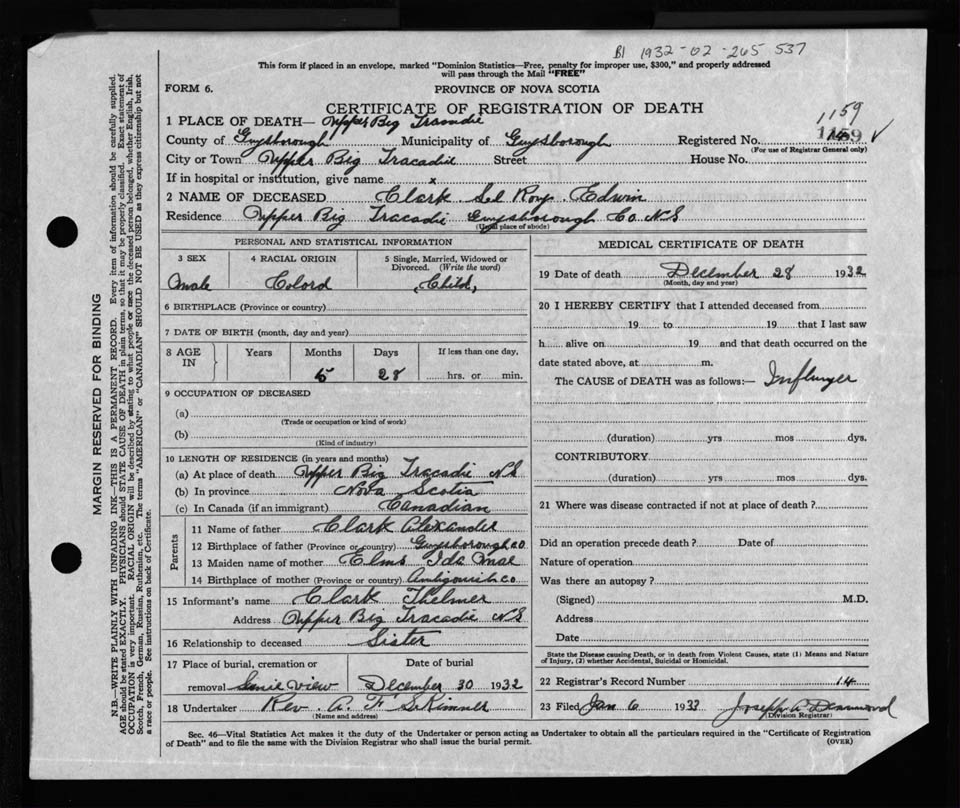 B1 1932-02-265 537
This form if placed in an envelope, marked "Dominion Statistics—Free, penalty for improper use, $300," and properly addressed
will pass through the Mail "FREE"
FORM 6.
PROVINCE OF NOVA SCOTIA
CERTIFICATE OF REGISTRATION OF DEATH
1159
1 PLACE OF DEATH— Upper Big Tracadie
County of Guysborough Municipality of Guysborough Registered No.
(For use of Registrar General only)
City or Town Upper Big Tracadie Street House No.
If in hospital or institution, give name x
2 NAME OF DECEASED Clark Edwin
Residence Upper Big Tracadie Guysborough Co. N S
(Usual place of abode)
PERSONAL AND STATISTICAL INFORMATION
3 SEX 4 RACIAL ORIGIN 5 Single, Married, Widowed or Divorced. (Write the word)
Male Colord Child,
6 BIRTHPLACE (Province or country)
7 DATE OF BIRTH (month, day and year)
8 AGE IN Years Months Days If less than one day,
5 28 hrs. or min.
9 OCCUPATION OF DECEASED
(a)
(Trade or occupation or kind of work)
(b)
(Kind of industry)
10 LENGTH OF RESIDENCE (in years and months)
(a) At place of death Upper Big Tracadie N S
(b) In province Nova Scotia
(c) In Canada (if an immigrant) Canadian
Parents
11 Name of father Clark Alexander
12 Birthplace of father (Province or country) Guysborough co
13 Maiden name of mother Elms Ida Mae
14 Birthplace of mother (Province or country) Antigonish Co
15 Informant's name Clark Thelmer
Address Upper Big Tracadie N S
16 Relationship to deceased Sister
17 Place of burial, cremation or Date of burial
removal View December 30 1932
18 Undertaker Rev. A. F. Skinner
(Name and address)
MEDICAL CERTIFICATE OF DEATH
19 Date of death December 28 1932
(Month, day and year)
20 I HEREBY CERTIFY that I attended deceased from
19 to 19 that I last saw
h alive on 19 and that death occurred on the
date stated above, at m.
The CAUSE of DEATH was as follows:—
(duration) yrs mos dys.
CONTRIBUTORY
(duration) yrs mos dys.
21 Where was disease contracted if not at place of death?
Did an operation precede death? Date of
Nature of operation
Was there an autopsy?
(Signed) M.D.
Address
Date
State the Disease causing Death, or in death from Violent Causes, state (1) Means and Nature
of Injury, (2) whether Accidental, Suicidal or Homicidal.
22 Registrar's Record Number 14
23 Filed Jan 6 1933 Joseph A Desmond
(Division Registrar)
Sec. 46—Vital Statistics Act makes it the duty of the Undertaker or person acting as Undertaker to obtain all the particulars required in the "Certificate of Registration
of Death" and to file the same with the Division Registrar who shall issue the burial permit.
(OVER)
MARGIN RESERVED FOR BINDING
N.B.—WRITE PLAINLY WITH UNFADING INK—THIS IS A PERMANENT RECORD. Every item of information should be carefully supplied.
AGE should be stated EXACTLY. PHYSICIANS should STATE CAUSE OF DEATH in plain terms, so that it may be properly classified. Exact statement of
OCCUPATION is very important. RACIAL ORIGIN will be described by stating to what people or race the deceased person belonged, whether English, Irish,
Scotch, French, German, Russian, Ruthenian, etc. The terms "AMERICAN" or "CANADIAN" SHOULD NOT BE USED as they express citizenship but not
a race or people. See instructions on back of Certificate.